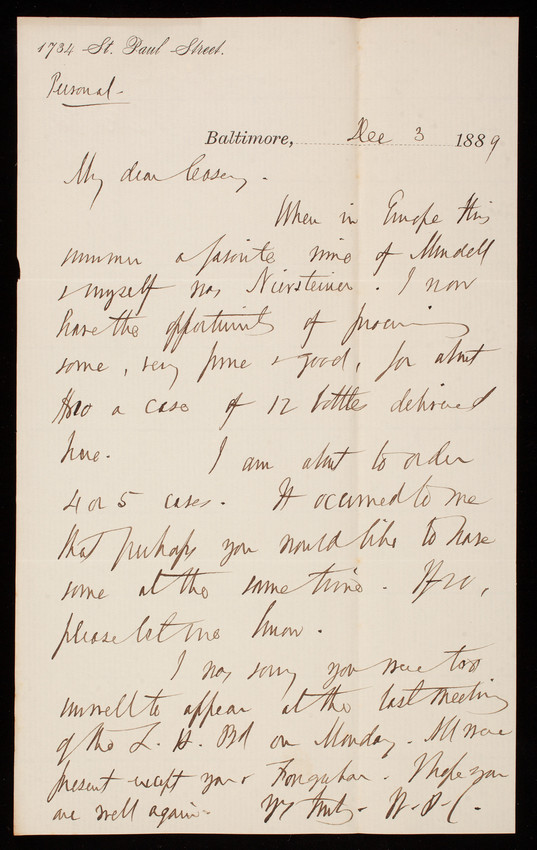 1734 St. Paul Street.
Personal -
Baltimore, Dec 3 1889
My dear Casey -
When in Europe this
summer a favorite wine of Mendell
& myself was Niersteiner. I now
have the opportunity of procuring
some, very pure & good, for about
a case of 12 bottles delivered
here. I am about to order
4 or 5 cases. It occurred to me
that perhaps you would like to have
some at the same time. If so,
please let me know.
I was sorry you were too
unwell to appear at the last meeting
of the L. H. Bd on Monday. All were
present except you & Farquhar. I hope you
are well again - Yrs truly - W. P. C.